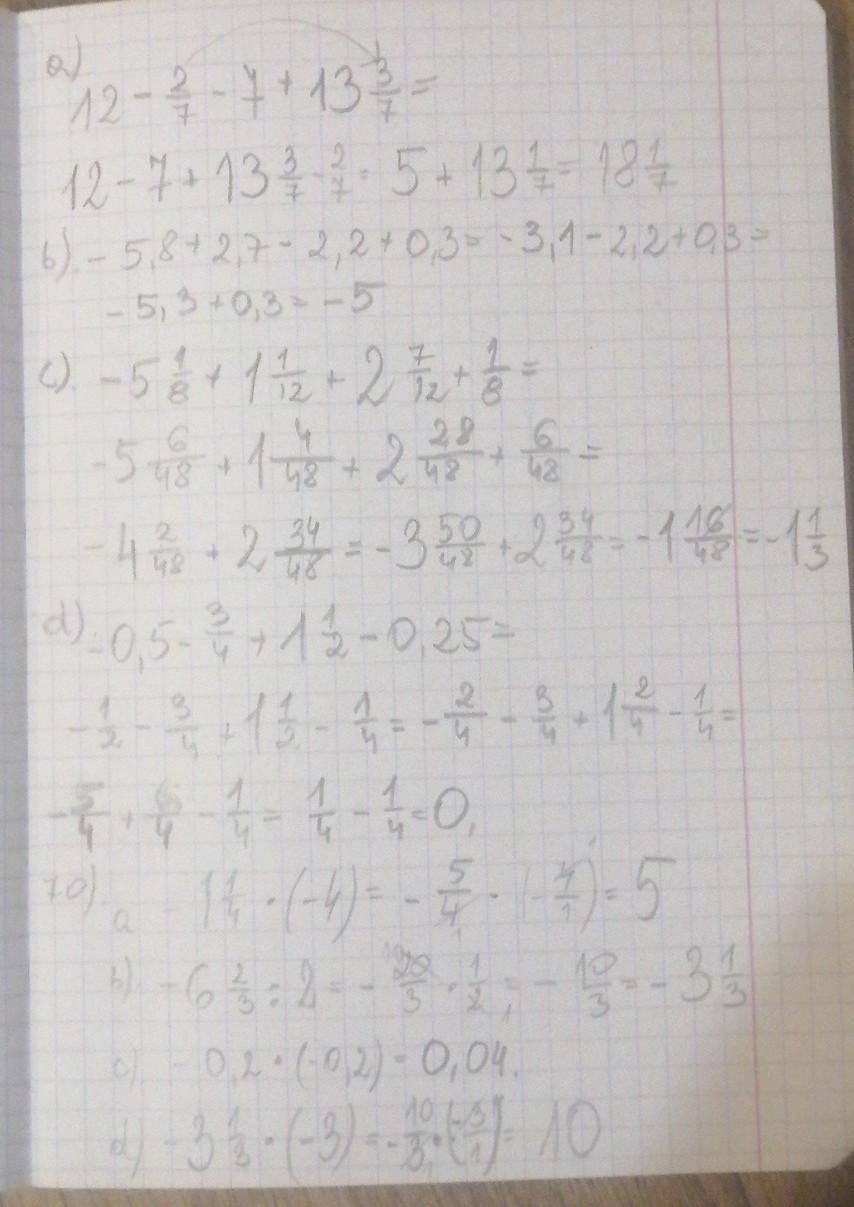 a)
12 - 2/7 - 7 + 13 3/7 =
12 - 7 + 13 3/7 - 2/7 = 5 + 13 1/7 = 18 1/7
b) - 5,8 + 2,7 - 2,2 + 0,3 = - 3,1 - 2,2 + 0,3 =
- 5,3 + 0,3 = - 5
c) - 5 1/8 + 1 1/12 + 2 7/12 + 1/8 =
- 5 6/48 + 1 4/48 + 2 28/48 + 6/48 =
- 4 2/48 + 2 34/48 = - 3 50/48 + 2 34/48 = - 1 16/48 = - 1 1/3
d) - 0,5 - 3/4 + 1 1/2 - 0,25 =
- 1/2 - 3/4 + 1 1/2 - 1/4 = - 2/4 - 3/4 + 1 2/4 - 1/4 =
- 5/4 + 6/4 - 1/4 = 1/4 - 1/4 = 0,
70) a - 1 1/4 · (-4) = - 5/4 · (- 4/1) = 5
b) - 6 2/3 : 2 = - 20/3 · 1/2 = - 10/3 = - 3 1/3
c) - 0,2 · (-0,2) = 0,04.
d) - 3 1/3 · (-3) = - 10/3 · (-3/1) = 10